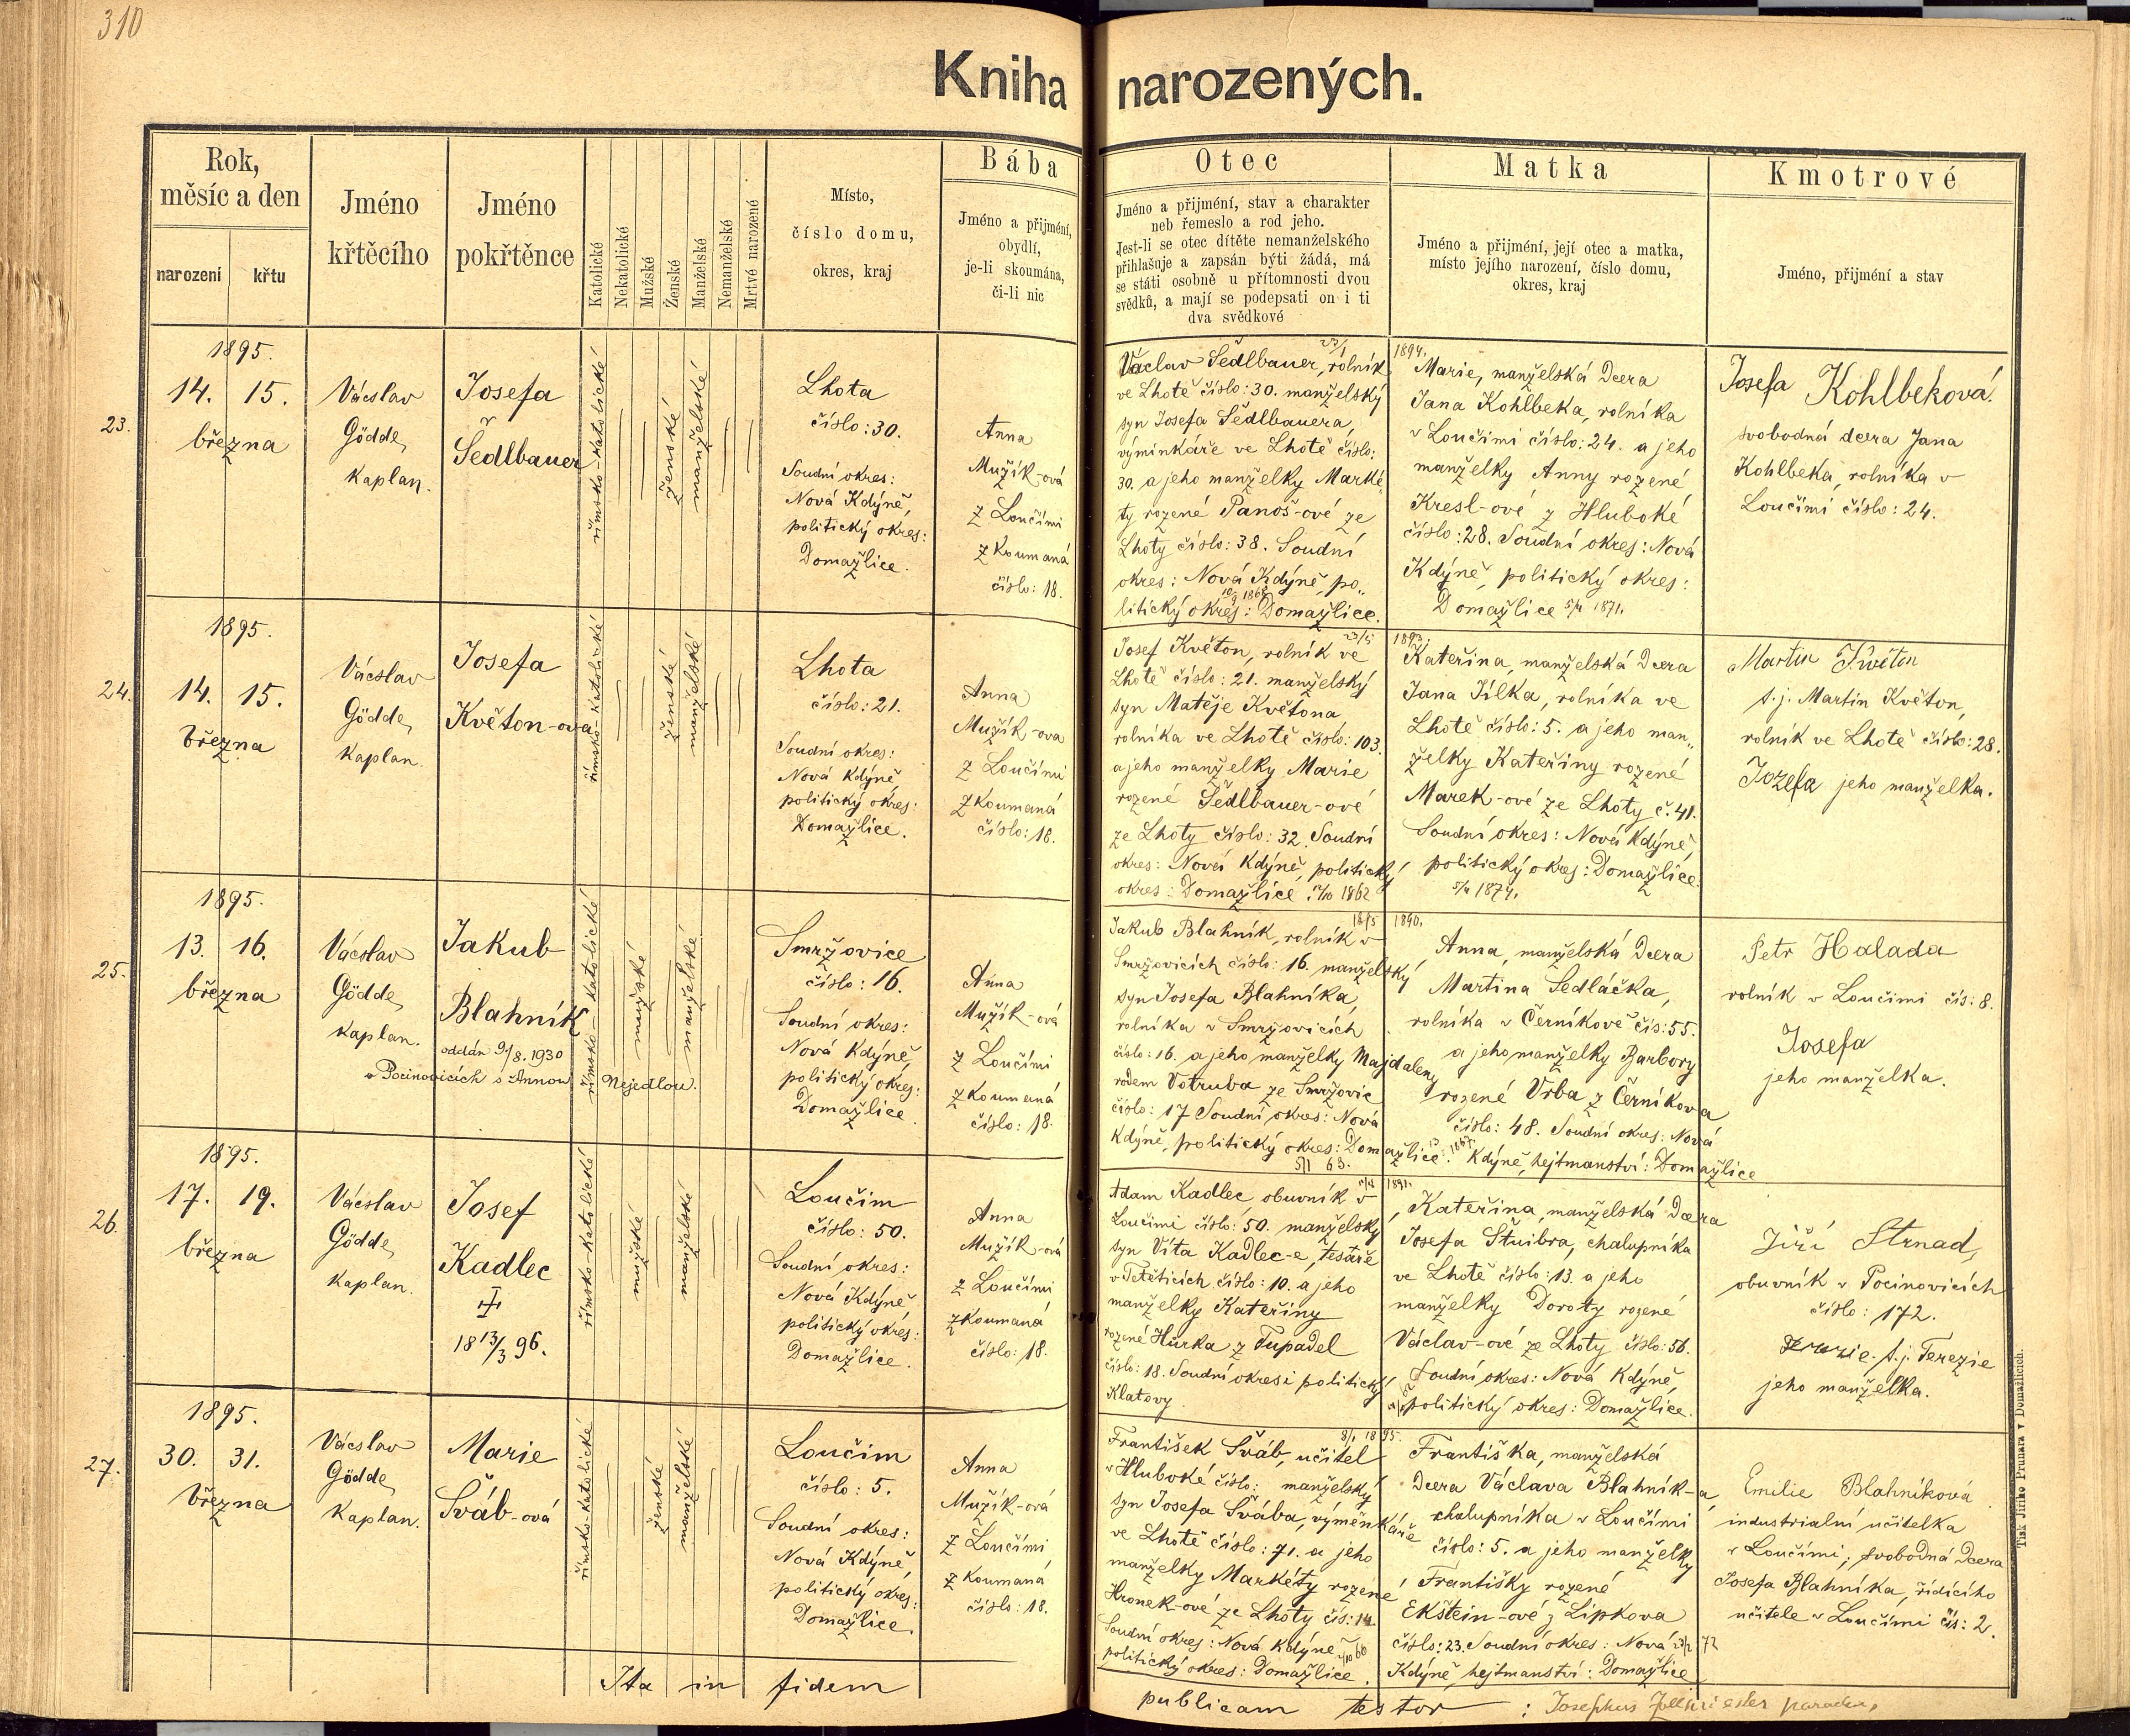 310
Kniha narozených.
Rok,
měsíc a den
narození
křtu
Jméno
křtěcího
Jméno
pokřtěnce
Katolické
Nekatolické
Mužské
Ženské
Manželské
Nemanželské
Mrtvě narozené
Místo,
číslo domu,
okres, kraj
Bába
Jméno a přijmení,
obydlí,
je-li skoumána,
či-li nic
Otec
Jméno a přijmení, stav a charakter
neb řemeslo a rod jeho.
Jest-li se otec dítěte nemanželského
přihlašuje a zapsán býti žádá, má
se státi osobně u přítomnosti dvou
svědků, a mají se podepsati on i ti
dva svědkové
Matka
Jméno a přijmení, její otec a matka,
místo jejího narození, číslo domu,
okres, kraj
Kmotrové
Jméno, přijmení a stav
23.
1895.
14. 15.
března
Vácslav
Gödde,
kaplan.
Josefa
Šedlbauer
římsko-katolické
ženské
manželské
Lhota
číslo: 30.
Soudní okres:
Nová Kdýně,
politický okres:
Domažlice.
Anna
Mužík-ová
z Loučimi
zkoumaná
číslo: 18.
Václav Šedlbauer, rolník
ve Lhotě číslo: 30. manželský
syn Josefa Šedlbauera,
výminkáře ve Lhotě číslo:
30. a jeho manželky Marké-
ty rozené Panoš-ové ze
Lhoty číslo: 38. Soudní
okres: Nová Kdýně po„
litický okres: Domažlice.
1894.
Marie, manželská dcera
Jana Kohlbeka, rolníka
v Loučimi číslo: 24. a jeho
manželky Anny rozené
Kresl-ové z Hluboké
číslo: 28. Soudní okres: Nová
Kdýně, politický okres:
Domažlice 5/4 1871.
Josefa Kohlbeková.
svobodná dcera Jana
Kohlbeka, rolníka v
Loučimi číslo: 24.
24.
1895.
14. 15.
března
Vácslav
Gödde,
kaplan.
Josefa
Květon-ova
římsko-katolické
ženské
manželské
Lhota
číslo: 21.
Soudní okres:
Nová Kdýně
politický okres:
Domažlice.
Anna
Mužík-ova
z Loučimi
zkoumaná
číslo: 18.
Josef Květon, rolník ve 23/5
Lhotě číslo: 21. manželský
syn Matěje Květona,
rolníka ve Lhotě číslo: 103.
a jeho manželky Marie
rozené Šedlbauer-ové
ze Lhoty číslo: 32. Soudní
okres: Nová Kdýně, politický
okres: Domažlice. 1862
1893.
Kateřina, manželská dcera
Jana Jílka, rolníka ve
Lhotě číslo: 5. a jeho man„
želky Kateřiny rozené
Marek-ové ze Lhoty č. 41.
Soudní okres: Nová Kdýně,
politický okres: Domažlice.
1874.
Martin Kwéton
t. j. Martin Květon,
rolník ve Lhotě číslo: 28.
Jozefa jeho manželka.
25.
1895.
13. 16.
března
Vácslav
Gödde,
kaplan.
Jakub
Blahník
oddán 9/8. 1930
v Pocinovicích s Annou Nejedlou.
římsko-katolické
mužské
manželské
Smržovice
číslo: 16.
Soudní okres:
Nová Kdýně
politický okres:
Domažlice.
Anna
Mužík-ová
z Loučimi
zkoumaná
číslo: 18.
Jakub Blahník, rolník v
Smržovicích číslo: 16. manželský
syn Josefa Blahníka,
rolníka v Smržovicích
číslo: 16. a jeho manželky Majdaleny
rodem Votruba ze Smržovic
číslo: 17 Soudní okres: Nová
Kdýně, politický okres: Domažlice.
5/1 63.
1890.
Anna, manželská dcera
Martina Sedláčka,
rolníka v Černíkově čís: 55.
a jeho manželky Barbory
rozené Vrba z Černíkova
číslo: 48. Soudní okres: Nová
Kdýně, hejtmanství: Domažlice
Petr Halada
rolník v Loučimi čís: 8.
Josefa
jeho manželka.
26.
1895.
17. 19.
března
Vácslav
Gödde,
kaplan.
Josef
Kadlec
18 13/3 96.
římsko-katolické
mužské
manželské
Loučim
číslo: 50.
Soudní okres:
Nová Kdýně,
politický okres:
Domažlice.
Anna
Mužík-ová
z Loučimi
zkoumaná
číslo: 18.
Adam Kadlec, obuvník v
Loučimi číslo: 50. manželský
syn Víta Kadlec-e, tesaře
v Tetěticích číslo: 10. a jeho
manželky Kateřiny
rozené Hůrka z Tupadel
číslo: 18. Soudní okres i politický
Klatovy.
1891.
Kateřina, manželská dcera
Josefa Štuibra, chalupníka
ve Lhotě číslo: 13. a jeho
manželky Doroty rozené
Václav-ové ze Lhoty číslo: 56.
Soudní okres: Nová Kdýně,
politický okres: Domažlice.
Jiří Strnad,
obuvník v Pocinovicích
číslo: 172.
t. j. Terezie
jeho manželka.
27.
1895.
30. 31.
března
Vácslav
Gödde
kaplan.
Marie
Šváb-ová
římsko-katolické
ženské
manželské
Loučim
číslo: 5.
Soudní okres:
Nová Kdýně,
politický okres:
Domažlice.
Anna
Mužík-ová
z Loučimi
zkoumaná
číslo: 18.
8/1 1895.
František Šváb, učitel
v Hluboké číslo: manželský
syn Josefa Švába, výměnkáře
ve Lhotě číslo: 71. a jeho
manželky Markéty rozené
Hronek-ové ze Lhoty čís: 14.
Soudní okres: Nová Kdýně
politický okres: Domažlice.
Františka, manželská
dcera Václava Blahník-a,
chalupníka v Loučimi
číslo: 5. a jeho manželky
Františky rozené
Ekštein-ové z Lipkova
číslo: 23. Soudní okres: Nová 72
Kdýně, hejtmanství: Domažlice
Emilie Blahníková
industrialní učitelka
v Loučimi; svobodná dcera
Josefa Blahníka, řídícího
učitele v Loučimi čís: 2.
Ita in fidem publicam testor: Josephus
Tisk Jiřího Prunara v Domažlicích.